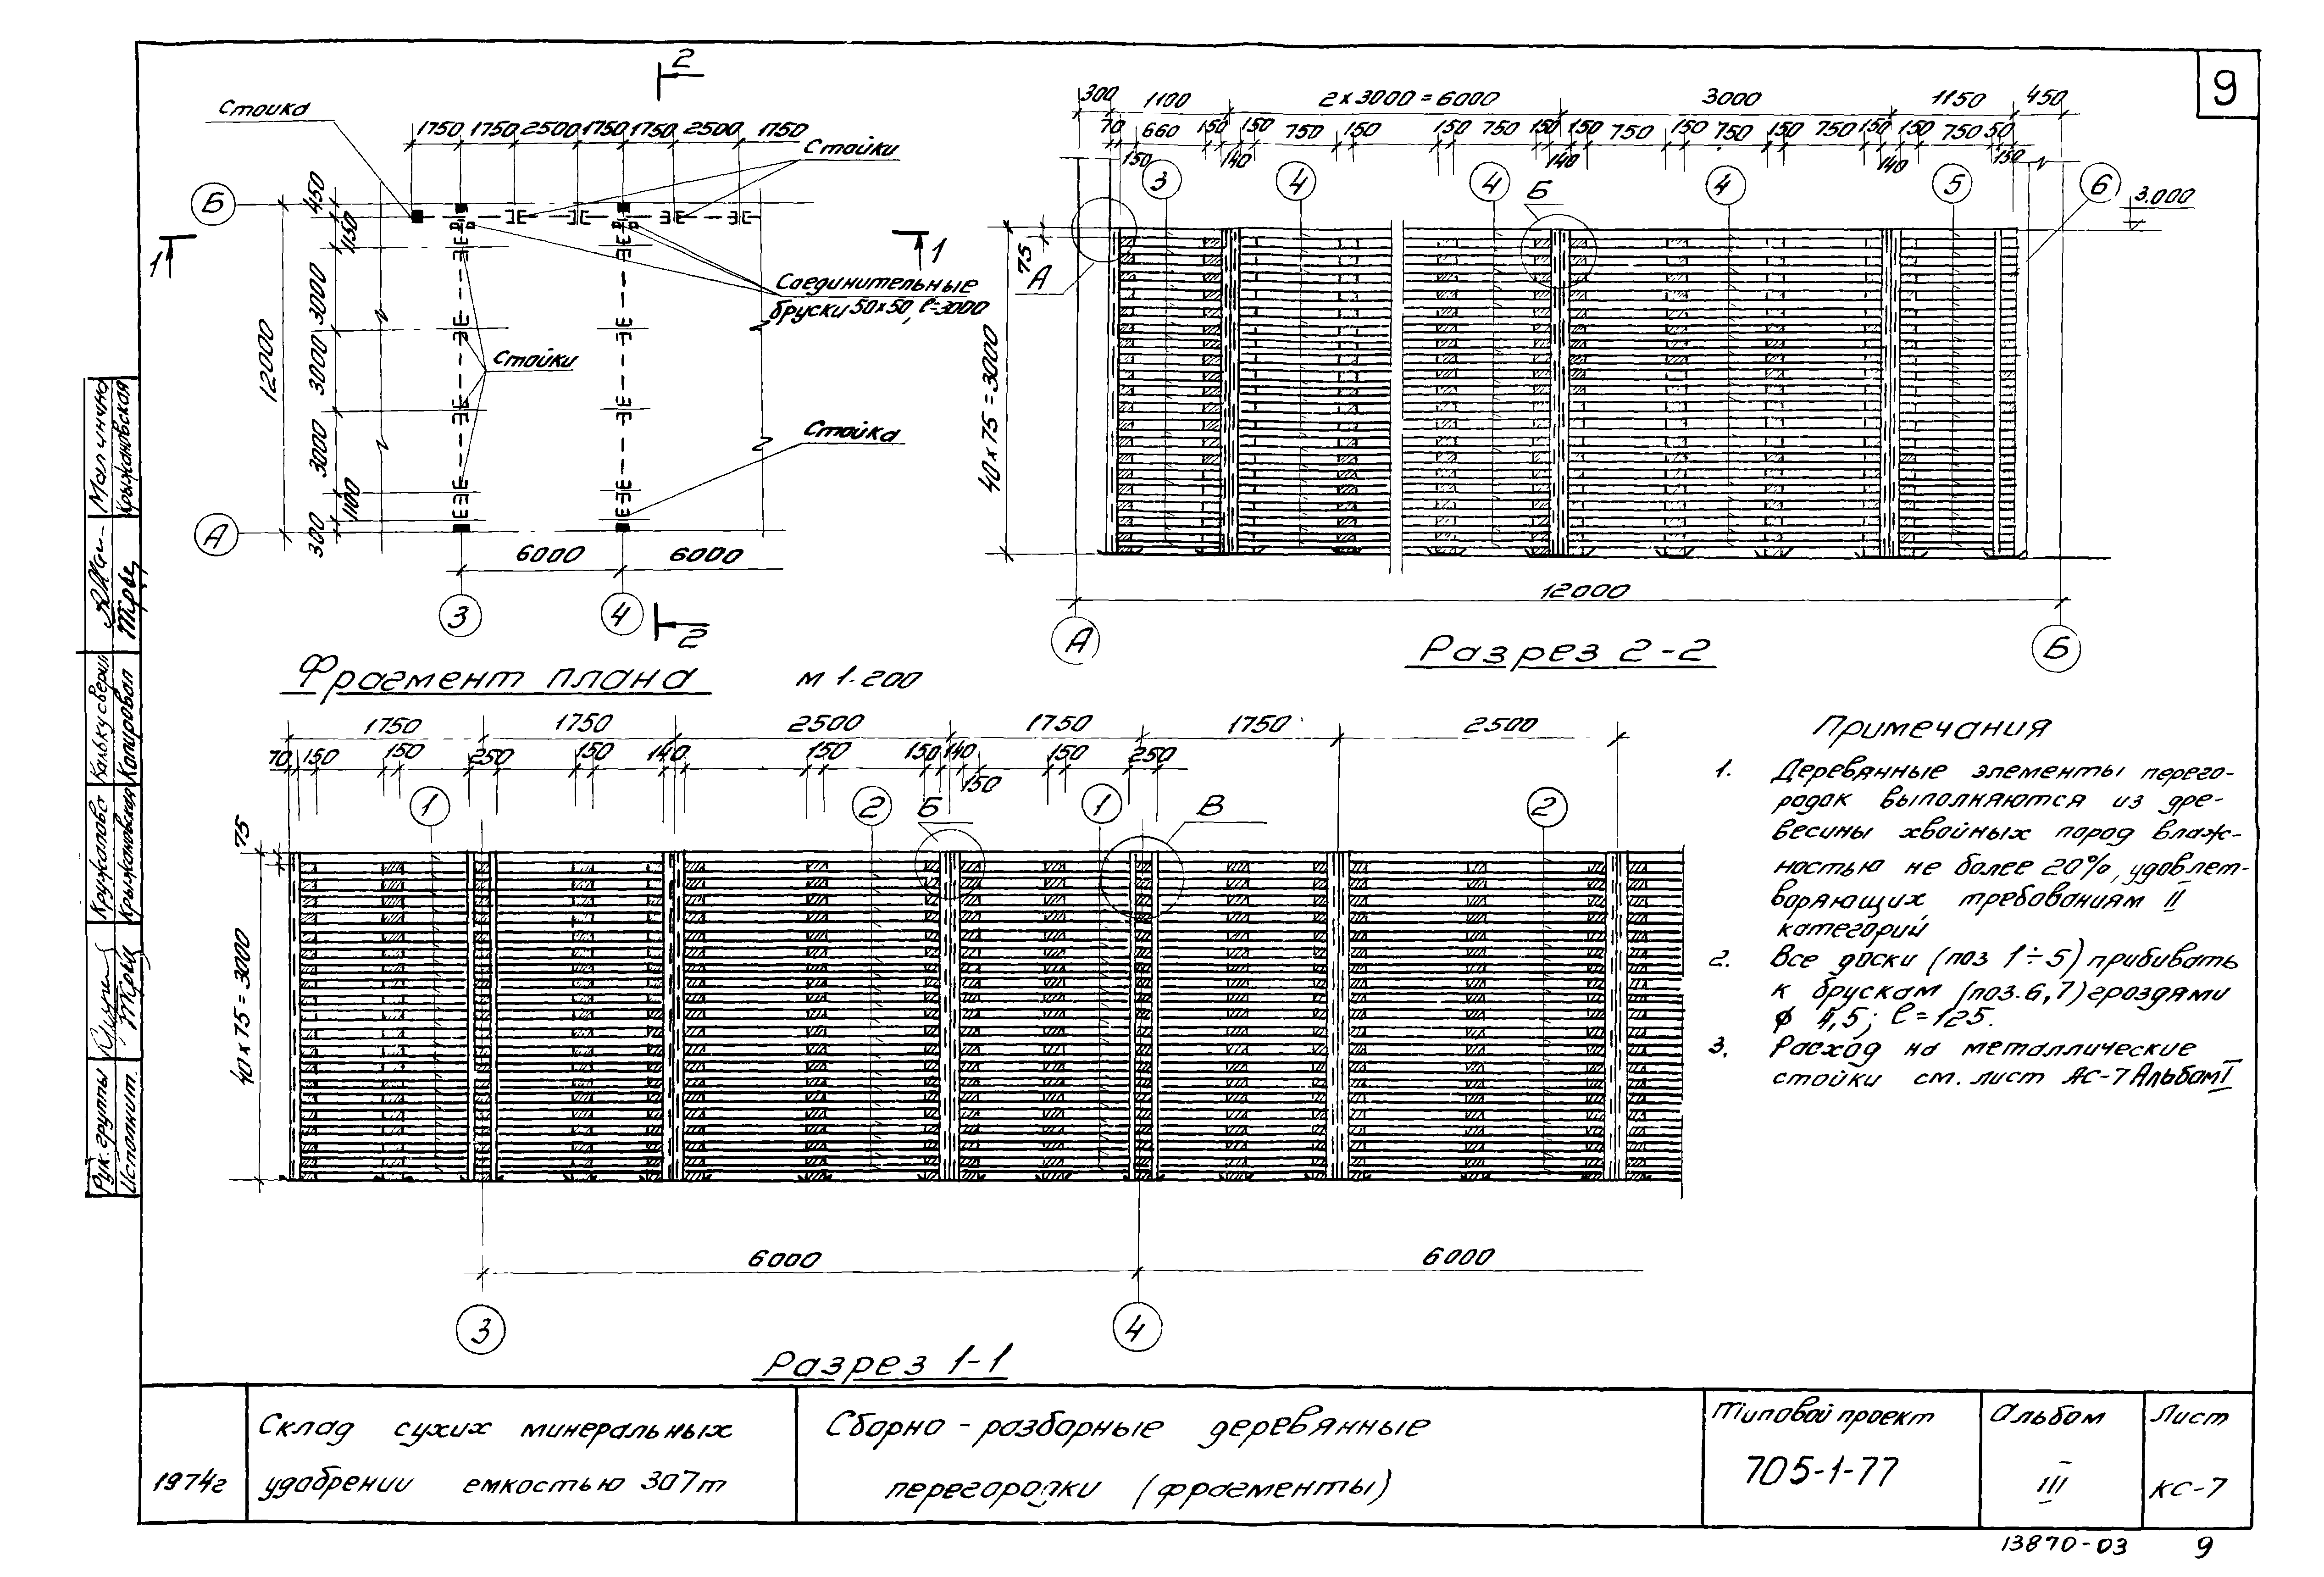 9
2
Стойка
1750 1750 2500 1750 1750 2500 1750
Стойки
Б
450
1150
1
1
3000
Соединительные
бруски 50×50, ℓ=3000
12000
3000
Стойки
3000
Стойка
1100
300
А
6000 6000
3 4
2
Фрагмент плана м 1:200
300 1100 2×3000=6000 3000 1150 450
70 660 150 150 750 150 150 750 150 150 750 150 750 150 750 150 150 750 50
150 140 140 140 150
3 4 4 Б 4 5 6
3.000
75
А
40×75=3000
12000
А Б
Разрез 2-2
1750 1750 2500 1750 1750 2500
70 150 150 250 150 140 150 150 140 150 250
150
1 2 Б 1 В 2
75
40×75=3000
6000 6000
3 4
Разрез 1-1
Примечания
1. Деревянные элементы перего-
родок выполняются из дре-
весины хвойных пород влаж-
ностью не более 20%, удовлет-
воряющих требованиям II
категорий
2. Все доски (поз 1÷5) прибивать
к брускам (поз.6,7) гвоздями
ф 4,5; ℓ=125.
3. Расход на металлические
стойки см. лист АС-7 Альбом I
Рук.группы Кружалова Кальку сверил Малинина
Исполнит. Крыжановская Копировал Крыжановская
1974г
Склад сухих минеральных
удобрении емкостью 307т
Сборно-разборные деревянные
перегородки (фрагменты)
Типовой проект
705-1-77
Альбом
III
Лист
КС-7
13870-03 9